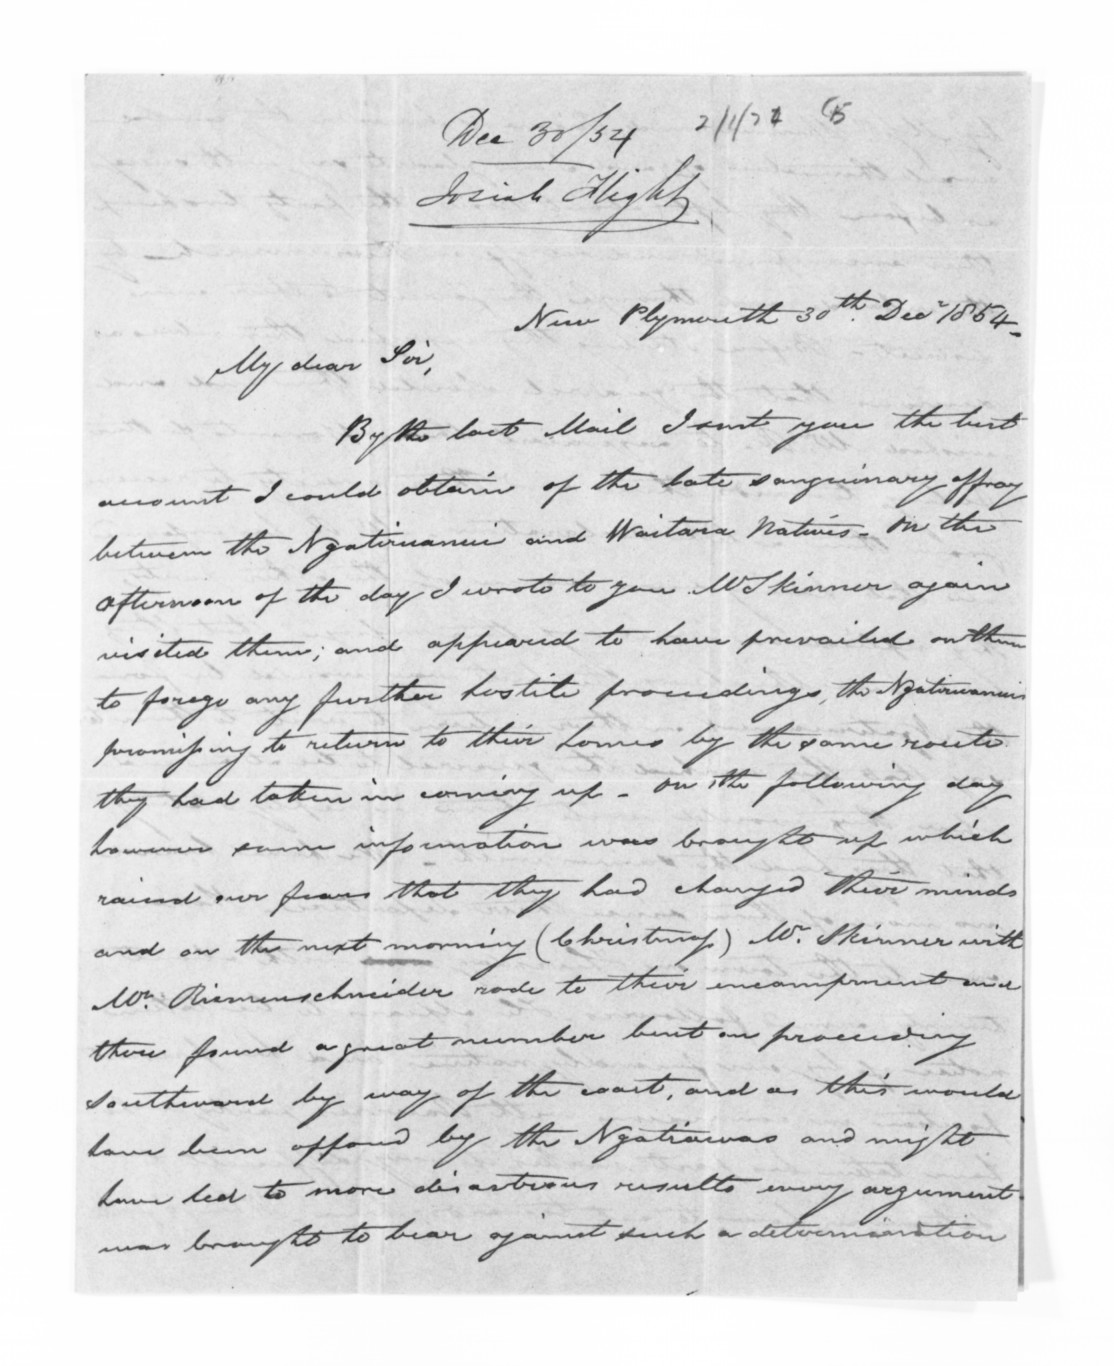 Dec 30/54
Josiah Flight
New Plymouth 30th. Decr 1854_
My dear Sir,
By the last Mail I sent you the best
account I could obtain of the late sanguinary affray
between the Ngatiruanui and Waitara Natives_ On the
afternoon of the day I wrote to you Mr Skinner again
visited them; and appeared to have prevailed on them
to forego any further hostile proceedings, the Ngatiruanuis
promissing to return to their homes by the same route
they had taken in coming up _ On the following day
however some information was brought up which
raised our fears that they had changed their minds
and on the next morning (Christmas) Mr. Skinner with
Mr. Riemenschneider rode to their encampment and
there found a great number bent on proceeding
southward by way of the coast, and as this would
have been opposed by the Ngatiawas and might
have led to more disastrous results every argument
was brought to bear against such a determination